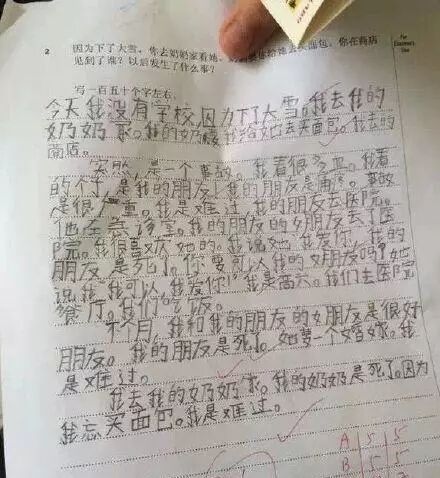 2 因为下了大雪，你去奶奶家看她。 你给她去买面包。你在商店
见到了谁？以后发生了什么事？
For
Examiner's
Use
写一百五十个字左右。
今天我没有学校，因为下了大雪。我去我的
奶奶家。我的奶奶 我给她去买面包。我去的
商店。
突然，是一个事故。我看很多血。我看
的个子，是我的朋友！我的朋友是 。事故
是很严重。我是难过。我的朋友去医院。
他在急诊室。我的朋友的女朋友去了医
院。我很喜欢她的。我说她“我爱你！我的
朋友是死了。你要可以我的女朋友吗？”她
说“我，我可以！我爱你！”我是高兴。我们去医院
餐厅。我们吃饭。
个月，我和我的朋友的女朋友是很好
朋友。我的朋友是死了。她要一个婚嫁。我
是难过。
我去我的奶奶家。我的奶奶是死了。因为
我忘买面包。我是难过。
A 5 5
B 5 5